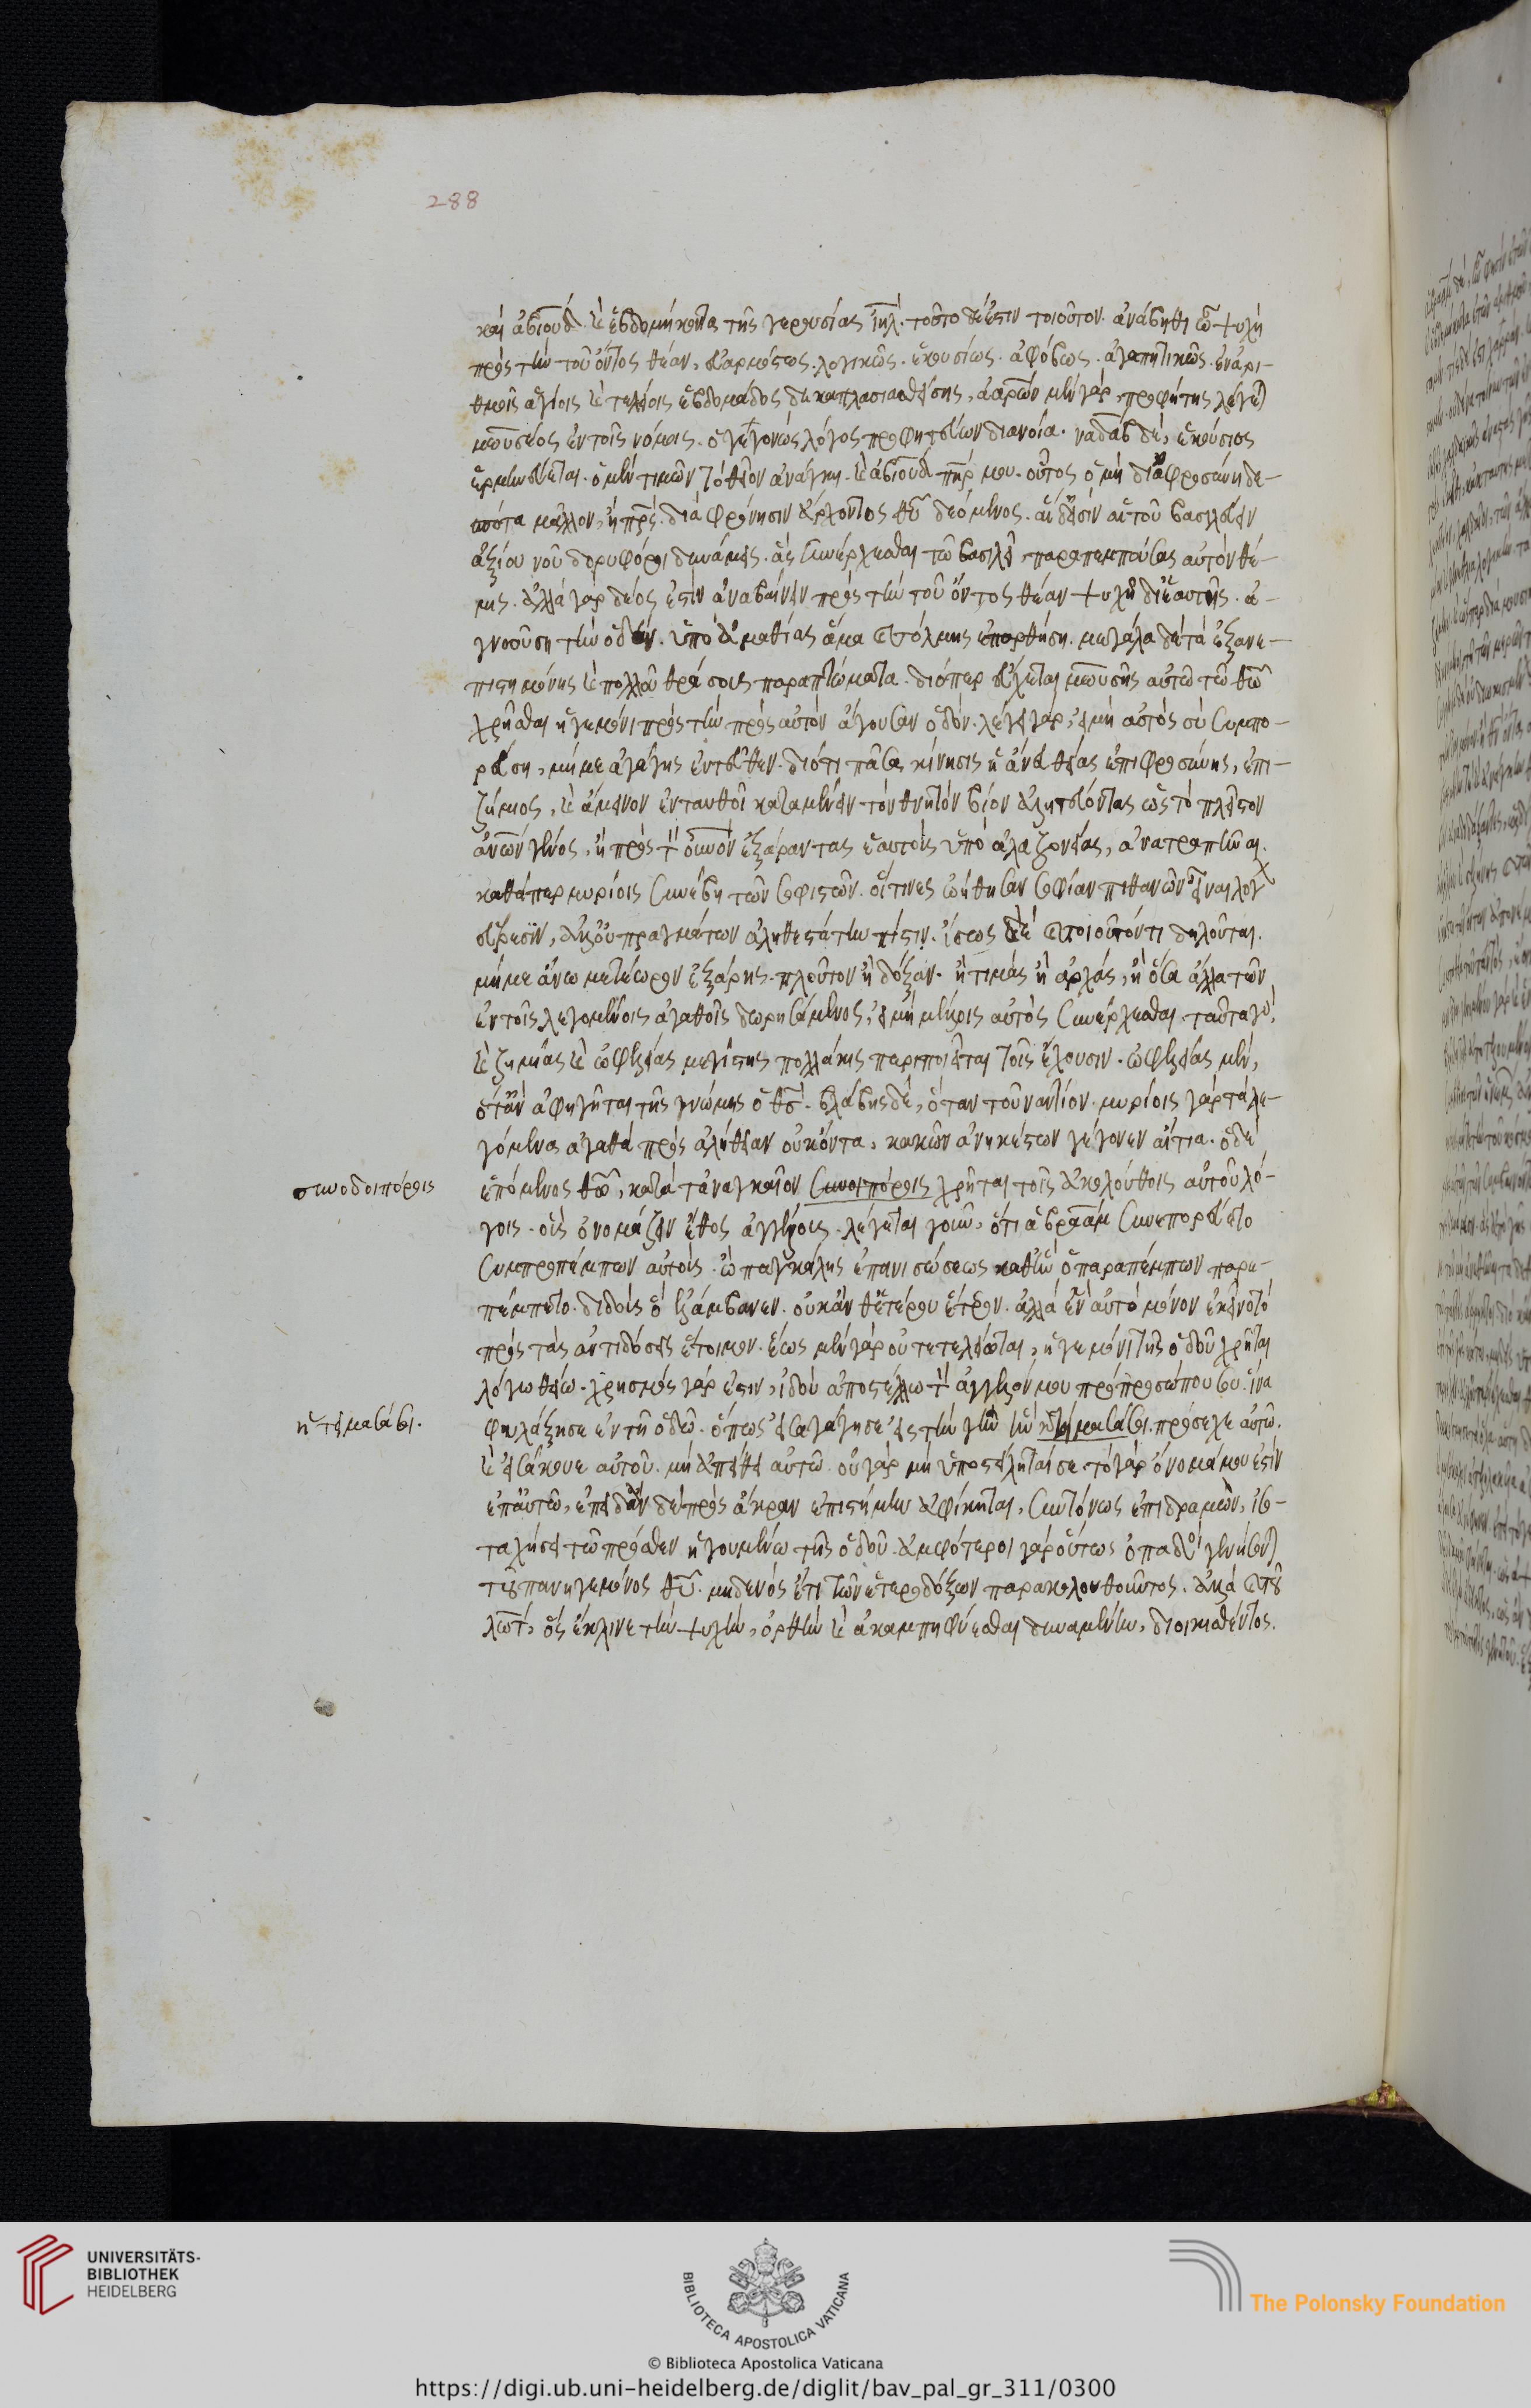 288
καὶ ἀβιοὺδ καὶ ἑβδομήκοντα τῆς γερουσίας ιηλ. τοῦτο δέ ἐστιν τοιοῦτον. ἀνάβηθι ὦ ψυχὴ
πρὸς τὴν τοῦ ὄντος θέαν, εὐαρμόστως. λογικῶς. ἑκουσίως. ἀφόβως. ἀγαπητικῶς. ἐν ἀρι-
θμοῖς ἁγίοις καὶ τελείοις ἑβδομάδος δεκαπλασιασθείσης, ἀαρὼν μὲν γὰρ, προφήτης λέγεται
μωυσέος ἐν τοῖς νόμοις. ὁ γεγονὼς λόγος προφητεύων διανοία. ναδὰβ δὲ, ἑκούσιος
ἑρμηνεύεται. ὁ μὴ τιμῶν τὸ θεῖον ἀνάγκη. καὶ ἀβιοὺδ πηρ μου. οὗτος ὁ μὴ δι' ἀφροσύνη δε-
σπότα μᾶλλον, ἢ πρς. διὰ φρόνησιν ἄρχοντος θυ δεόμενος. αἵδ' εἰσὶν αἱ τοῦ βασιλεύειν
ἀξίου νοῦ δορυφόροι δυνάμεις. ἃς συνέρχεσθαι τῶ βασιλεῖ παραπεμπούσας αὐτὸν θέ-
μις. ἀλλὰ γὰρ δέος ἐστὶν ἀναβαίνειν πρὸς τὴν τοῦ ὄντος θέαν ψυχῇ δι' ἑαυτῆς. ἀ-
γνοούση τὴν ὁδόν. ὑπὸ ἀμαθίας ἅμα καὶ τόλμης ἐπαρθήση. μεγάλα δὲ τὰ ἐξ ἀνε-
πιστημόνης καὶ πολλοῦ θράσους παραπτώματα. διόπερ εὔχεται μωυσῆς αὐτῶ τῶ θω
χρῆσθαι ἡγεμόνι πρὸς τὴν πρὸς αὐτὸν ἄγουσαν ὁδόν. λέγει γὰρ, εἰ μὴ αὐτὸς σὺ συμπο-
ρεύση, μή με ἀγάγης ἐντεῦθεν. διότι πᾶσα κίνησις ἡ ἄνευ θείας ἐπιφροσύνης, ἐπι-
ζήμιος, καὶ ἄμεινον ἐνταυθοῖ καταμένειν τὸν θνητὸν βίον ἀλητεύοντας ὡς τὸ πλεῖστον
ἀνων γένος, ἢ πρὸς τὸν ουνον ἐξάραντας ἑαυτοὺς ὑπὸ ἀλαζονείας, ἀνατραπῆναι.
καθάπερ μυρίοις συνέβη τῶν σοφιστῶν. οἵτινες ὠήθησαν σοφίαν πιθανῶν εἶναι λόγων
εὕρεσιν, ἀλλ' οὐ πραγμάτων ἀληθεστάτην πίστιν. ἴσως δὲ καὶ τοιοῦτόν τι δηλοῦται.
μή με ἄνω μετέωρον ἐξάρης. πλοῦτον ἢ δόξαν. ἢ τιμὰς ἢ ἀρχὰς, ἢ ὅσα ἄλλα τῶν
ἐν τοῖς λεγομένοις ἀγαθοῖς δωρησάμενος, εἰ μὴ μέλλοις αὐτὸς συνέρχεσθαι. ταῦτα γὰρ
καὶ ζημίας καὶ ὠφελείας μεγίστης πολλάκις περιποιεῖται τοῖς ἔχουσιν. ὠφελείας μὲν,
ὅταν ἀφηγῆται τῆς γνώμης ὁ θς. βλάβης δὲ, ὅταν τοὐναντίον. μυρίοις γὰρ τὰ λε-
γόμενα ἀγαθὰ πρὸς ἀλήθειαν οὐκ ὄντα, κακῶν ἀνηκέστων γέγονεν αἴτια. ὁ δὲ
συνοδοιπόροις
ἑπόμενος θω, κατὰ τἀναγκαῖον συνοιπόροις χρῆται τοῖς ἀκολούθοις αὐτοῦ λό-
γοις. οὓς ὀνομάζειν ἔθος ἀγγέλους. λέγεται γοῦν, ὅτι ἀβραὰμ συνεπορεύετο
συμπροπέμπων αὐτούς. ὢ παγκάλης ἐπανισώσεως καθ' ἣν ὁ παραπέμπων παρε-
πέμπετο. διδοὺς ὃ ἐλάμβανεν. οὐκ ἀνθ' ἑτέρου ἕτερον. ἀλλὰ ἓν αὐτὸ μόνον ἐκεῖνο τὸ
πρὸς τὰς ἀντιδόσεις ἕτοιμον. ἕως μὲν γὰρ οὐ τετελείωται, ἡγεμόνι τῆς ὁδοῦ χρῆται
λόγω θείω. χρησμὸς γάρ ἐστιν, ἰδοὺ ἀποστέλλω τὸν ἄγγελόν μου πρὸ προσώπου σου. ἵνα
ἡτείμασά σοι.
φυλάξη σε ἐν τῆ ὁδῶ. ὅπως εἰσαγάγη σε εἰς τὴν γῆν ἣν ἡτοίμασά σοι. πρόσεχε αὐτῶ.
καὶ εἰσάκουε αὐτοῦ. μὴ ἀπείθει αὐτῶ. οὐ γὰρ μὴ ὑποστείληταί σε. τὸ γὰρ ὄνομά μου ἐστὶν
ἐπ' αὐτῶ, ἐπειδὰν δὲ πρὸς ἄκραν ἐπιστήμην ἀφίκηται, συντόνως ἐπιδραμὼν, ἰσο-
ταχήσει τῶ πρόσθεν ἡγουμένω τῆς ὁδοῦ. ἀμφότεροι γὰρ οὕτως ὀπαδοὶ γενήσονται
τοῦ πανηγεμόνος θυ. μηδενὸς ἔτι τῶν ἑτεροδόξων παρακολουθοῦντος. ἀλλὰ καὶ τοῦ
λὼτ, ὃς ἔκλινε τὴν ψυχὴν, ὀρθὴν καὶ ἀκαμπῆ φύεσθαι δυναμένην, διοικισθέντος.
UNIVERSITÄTS-
BIBLIOTHEK
HEIDELBERG
BIBLIOTECA APOSTOLICA VATICANA
The Polonsky Foundation
© Biblioteca Apostolica Vaticana
https://digi.ub.uni-heidelberg.de/diglit/bav_pal_gr_311/0300